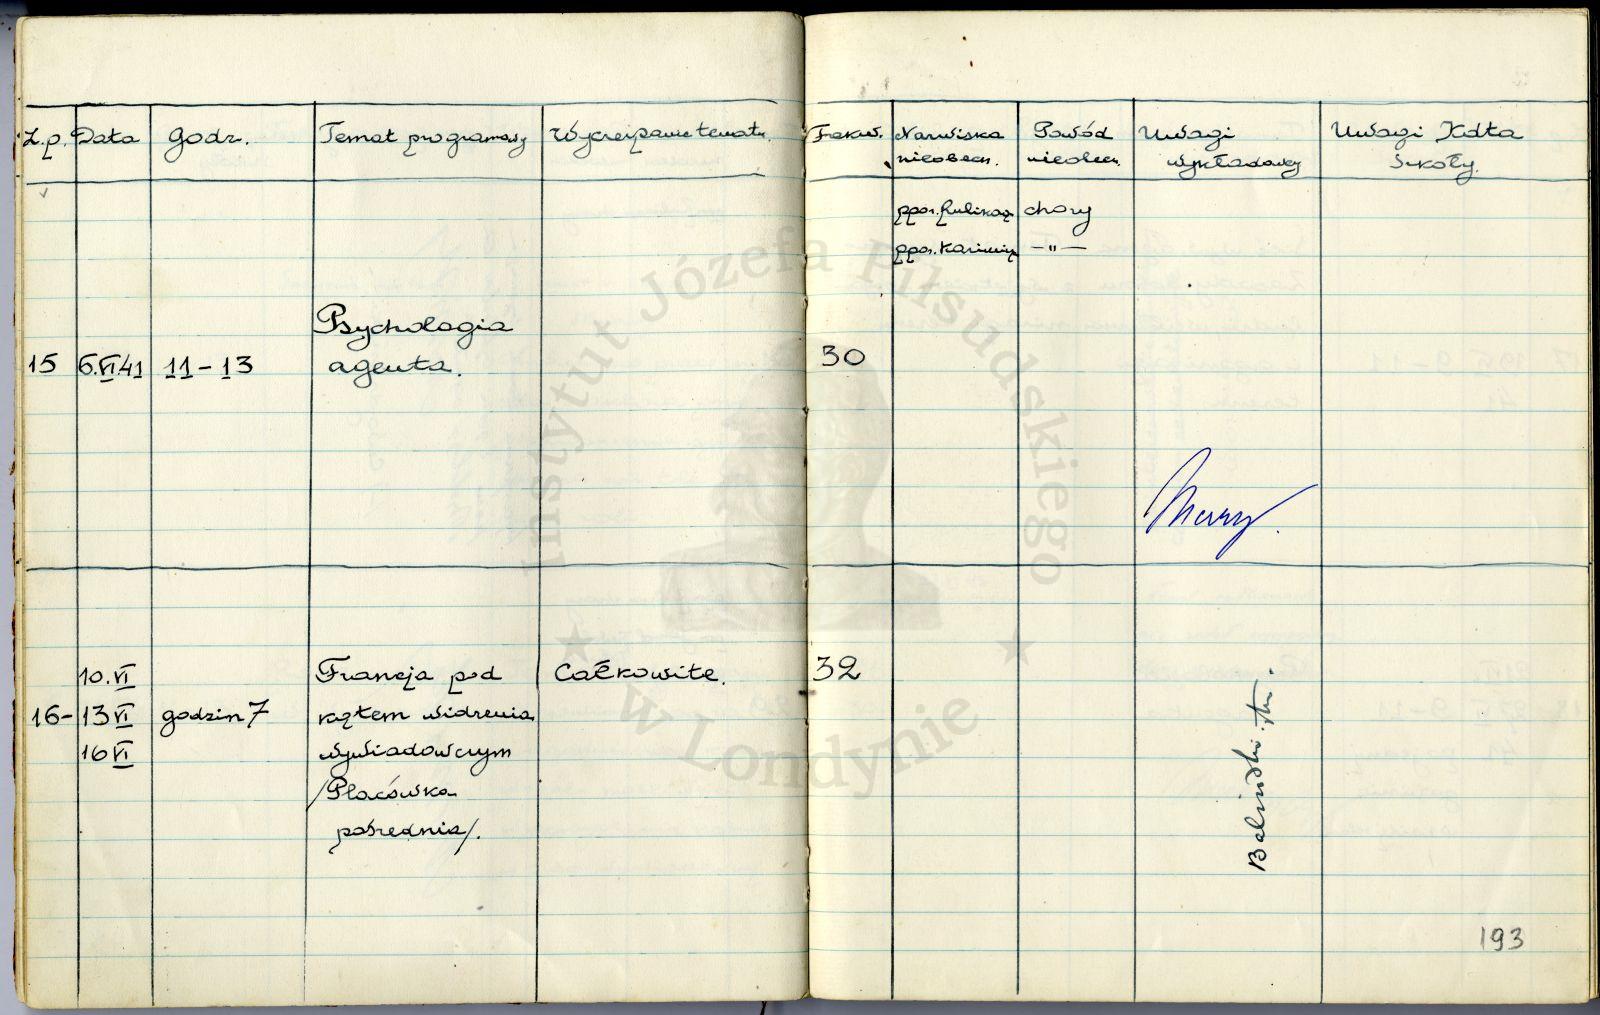 L.p. Data Godz. Temat programowy Wyczerpanie tematu. Frekw. Nazwiska nieobecn. Powód nieobecn. Uwagi wykładowcy Uwagi Kdta Szkoły.
ppor. chory
ppor. — " —
Psychologia
15 6.VI 41 11 - 13 agenta. 30
10.VI Francja pod Całkowite. 32
16- 13 VI godzin 7 kątem widzenia
16 VI wywiadowczym
/Placówka
pośrednia/.
Baliński
193
Instytut Józefa Piłsudskiego
w Londynie